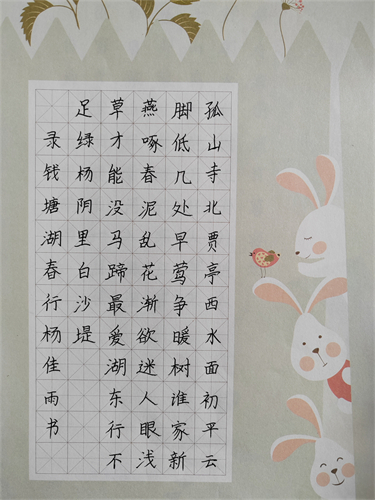 孤山寺北贾亭西水面初平云
脚低几处早莺争暖树谁家新
燕啄春泥乱花渐欲迷人眼浅
草才能没马蹄最爱湖东行不
足绿杨阴里白沙堤
录钱塘湖春行杨佳雨书